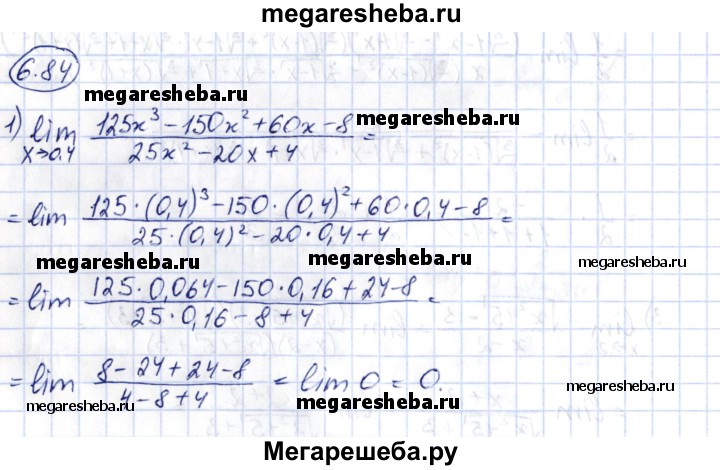 megaresheba.ru
6.84
megaresheba.ru megaresheba.ru
1) lim x→0,4 (125x³ − 150x² + 60x − 8)/(25x² − 20x + 4) =
= lim (125·(0,4)³ − 150·(0,4)² + 60·0,4 − 8)/(25·(0,4)² − 20·0,4 + 4) =
megaresheba.ru megaresheba.ru megaresheba.ru
= lim (125·0,064 − 150·0,16 + 24 − 8)/(25·0,16 − 8 + 4) =
= lim (8 − 24 + 24 − 8)/(4 − 8 + 4) = lim 0 = 0.
megaresheba.ru megaresheba.ru megaresheba.ru
Мегарешеба.ру